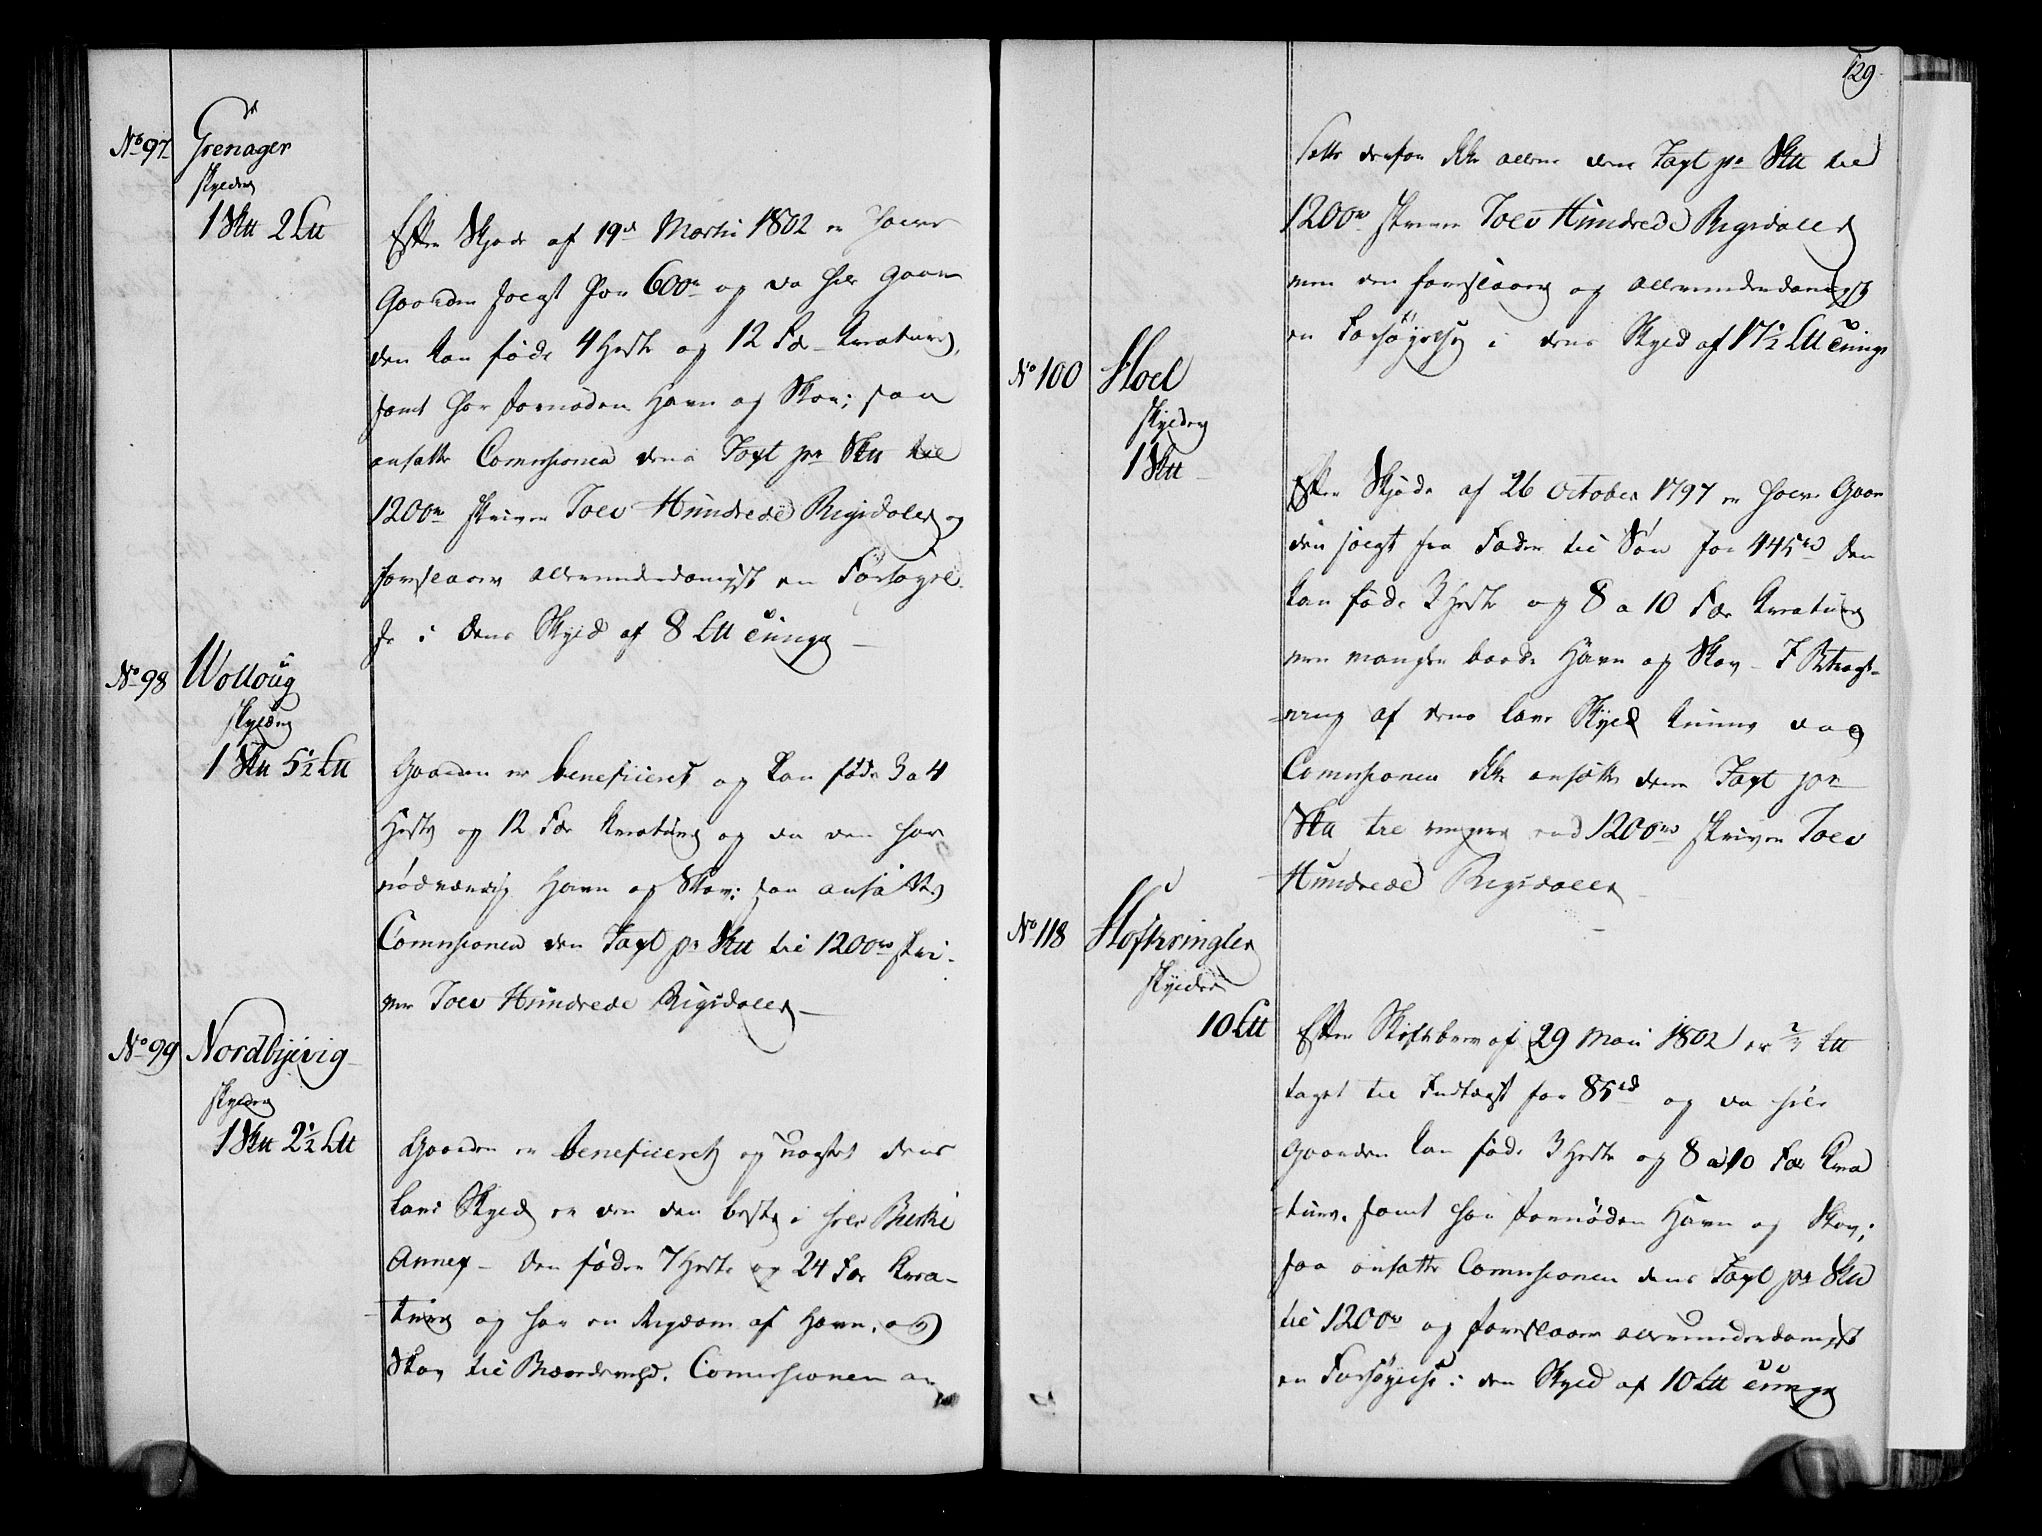 No 97
Grenager
skylder
1 Skll 2 Lll
Efter Skjøde af 19de Martii 1802 er halve
Gaarden solgt for 600rd og da hele Gaar-
den kan føde 4 Heste og 12 Fæ Kreature,
samt har fornøden Havn og Skov; saa
ansatte Commissionen dens Taxt pr Skll til
1200rd skriver Tolv Hundrede Rigsdaler og
foreslaaer allerunderdanigst en Forhøyel-
se i dens Skyld af 8 Lll tunge
No 98
Wolloug
skylder
1 Skll 5½ Lll
Gaarden er beneficeret og kan føde 3 a 4
Heste og 12 Fæ Kreature og da den har
nødvændig Havn og Skov; saa ansatte
Commissionen den Taxt pr Skll til 1200rd skri-
ver Tolv Hundrede Rigsdaler
No 99
Nordbyevig
skylder
1 Skll 2½ Lll
Gaarden er beneficeret og uagtet dens
lave Skyld er den den beste i hele
Annex – Den føder 7 Heste og 24 Fæ Krea-
ture og har en Rigdom af Havn, og
Skov til Brændeved. Commissionen an
129
satte derfor ikke allene dens Taxt pr Skll til
1200rd skriver Tolv Hundrede Rigsdaler
men den foreslaaer og allerunderdanigst
en Forhøyelse i dens Skyld af 17½ Lll tunge
No 100
Hoel
skylder
1 Skll
Efter Skjøde af 26 October 1797 er halve Gaar
den solgt fra Fader til Søn for 445rd Den
kan føde 3 Heste og 8 a 10 Fæ Kreature
men mangler baade Havn og Skov – I Betragt-
ning af dens lave Skyld kunne dog
Commissionen ikke ansætte dens Taxt pr
Skll til ringere end 1200rd skriver Tolv
Hundrede Rigsdaler
No 118
Hofkringler
skylder
10 Lll
Efter Skiftebrev af 29 Maii 1802 er Lll
taget til Indtægt for 85rd og da hele
Gaarden kan føde 3 Heste og 8 a 10 Fæ Krea
ture, samt har fornøden Havn og Skov;
saa ansatte Commissionen dens Taxt pr Skll
til 1200rd og foreslaaer allerunderdanigst
en Forhøyelse i den Skyld af 10 Lll tunge